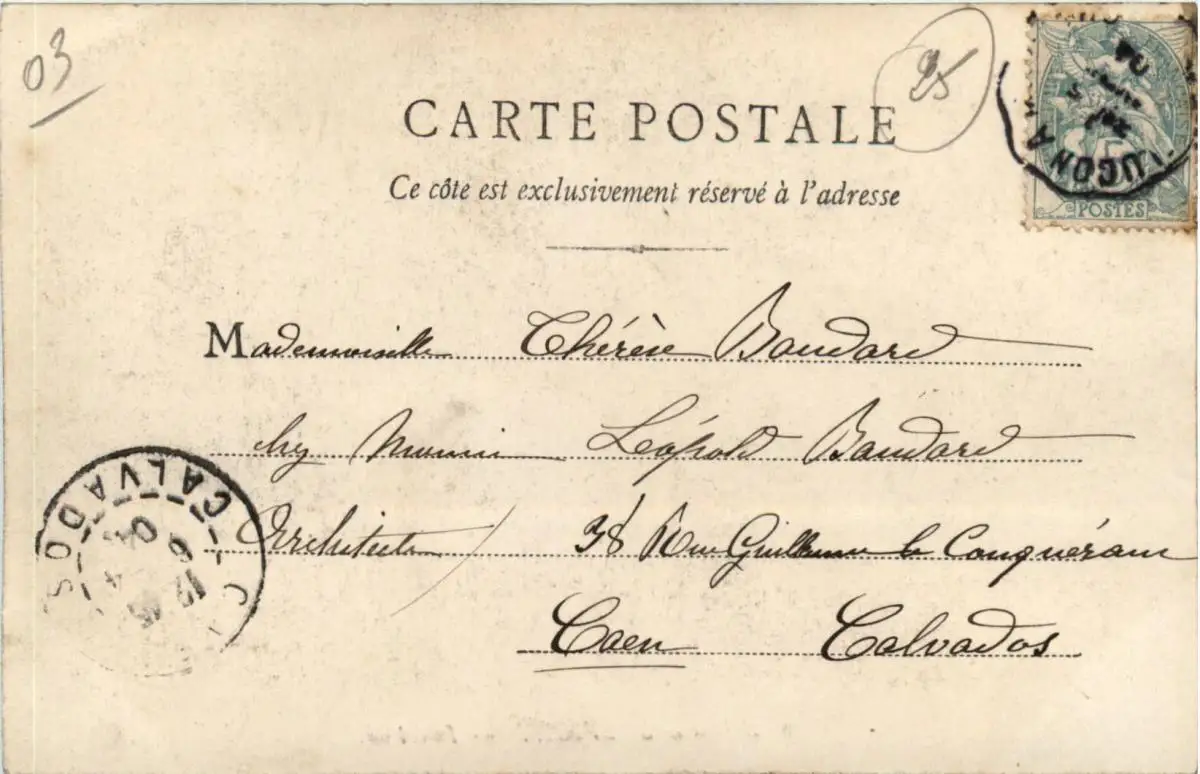 03
25
CARTE POSTALE
Ce côte est exclusivement réservé à l'adresse
5
POSTES
UCON A
04
Mademoiselle Thérèse Baudard
chez Léopold Baudard
Architecte 38 Rue Guillaume le Conquérant
Caen Calvados
CALVADOS
6
04